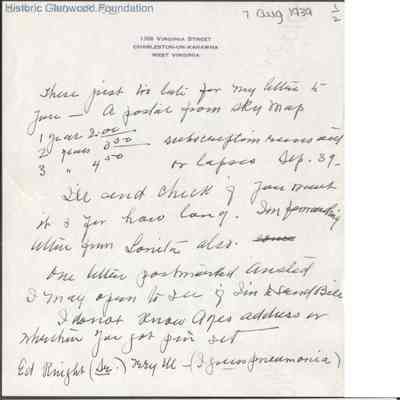 Historic Glenwood Foundation
7 Aug 1939
1/2
1306 VIRGINIA STREET
CHARLESTON-ON-KANAWHA
WEST VIRGINIA
These just too late for my letter to
you — A postal from Sky Map
1 year 2.00
2 years 3.50 subscription renewed
3 " 4.50 or lapses Sep. 39 —
I'll send check if you want
it & for how long. I'm forwarding
letter from Lonita also.
One letter postmarked Ansted
I may open to see if I'm to send Bill
I do not know Ages address or
whether you got pin set
Ed Knight (Sr.) very ill — (I guess pneumonia)